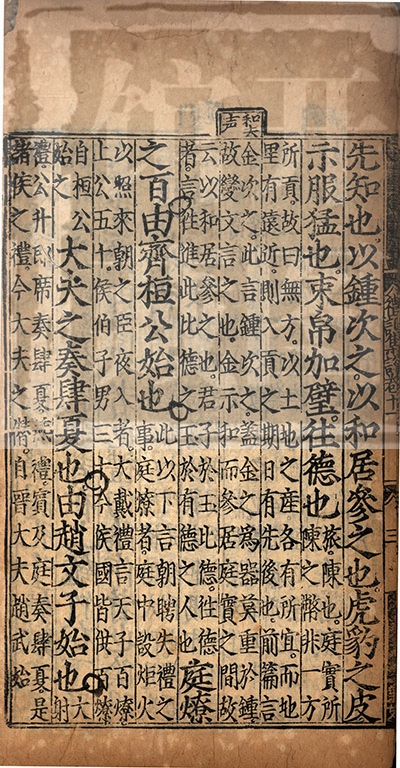 和去声
先知也。以鍾次之。以和居參之也。虎豹之皮
示服猛也。束帛加璧。往德也。旅。陳也。庭實所
陳之幣非一方
所貢。故曰無方。以土地之產各有所宜。而地
里有遠近。則入貢之期日有先後也。前篇言
金次之。此言鍾次之。蓋金之爲器莫重於鍾。
故變文言之也。金示和而參居庭實之間。故
云以和居參之也。君子於玉比德。往德
者。言往進此比德之玉於有德之人也庭燎
之百。由齊桓公始也。此以下言朝聘失禮之
事。庭燎者。庭中設炬火
以照來朝之臣夜入者。大戴禮言天子百燎
上公五十。侯伯子男三十。今侯國皆供百燎
自桓公
始之大夫之奏肆夏也。由趙文子始也。大射
禮公升即席奏肆夏。燕禮。賓及庭奏肆夏。是
諸侯之禮。今大夫之僭。自晉大夫趙武始